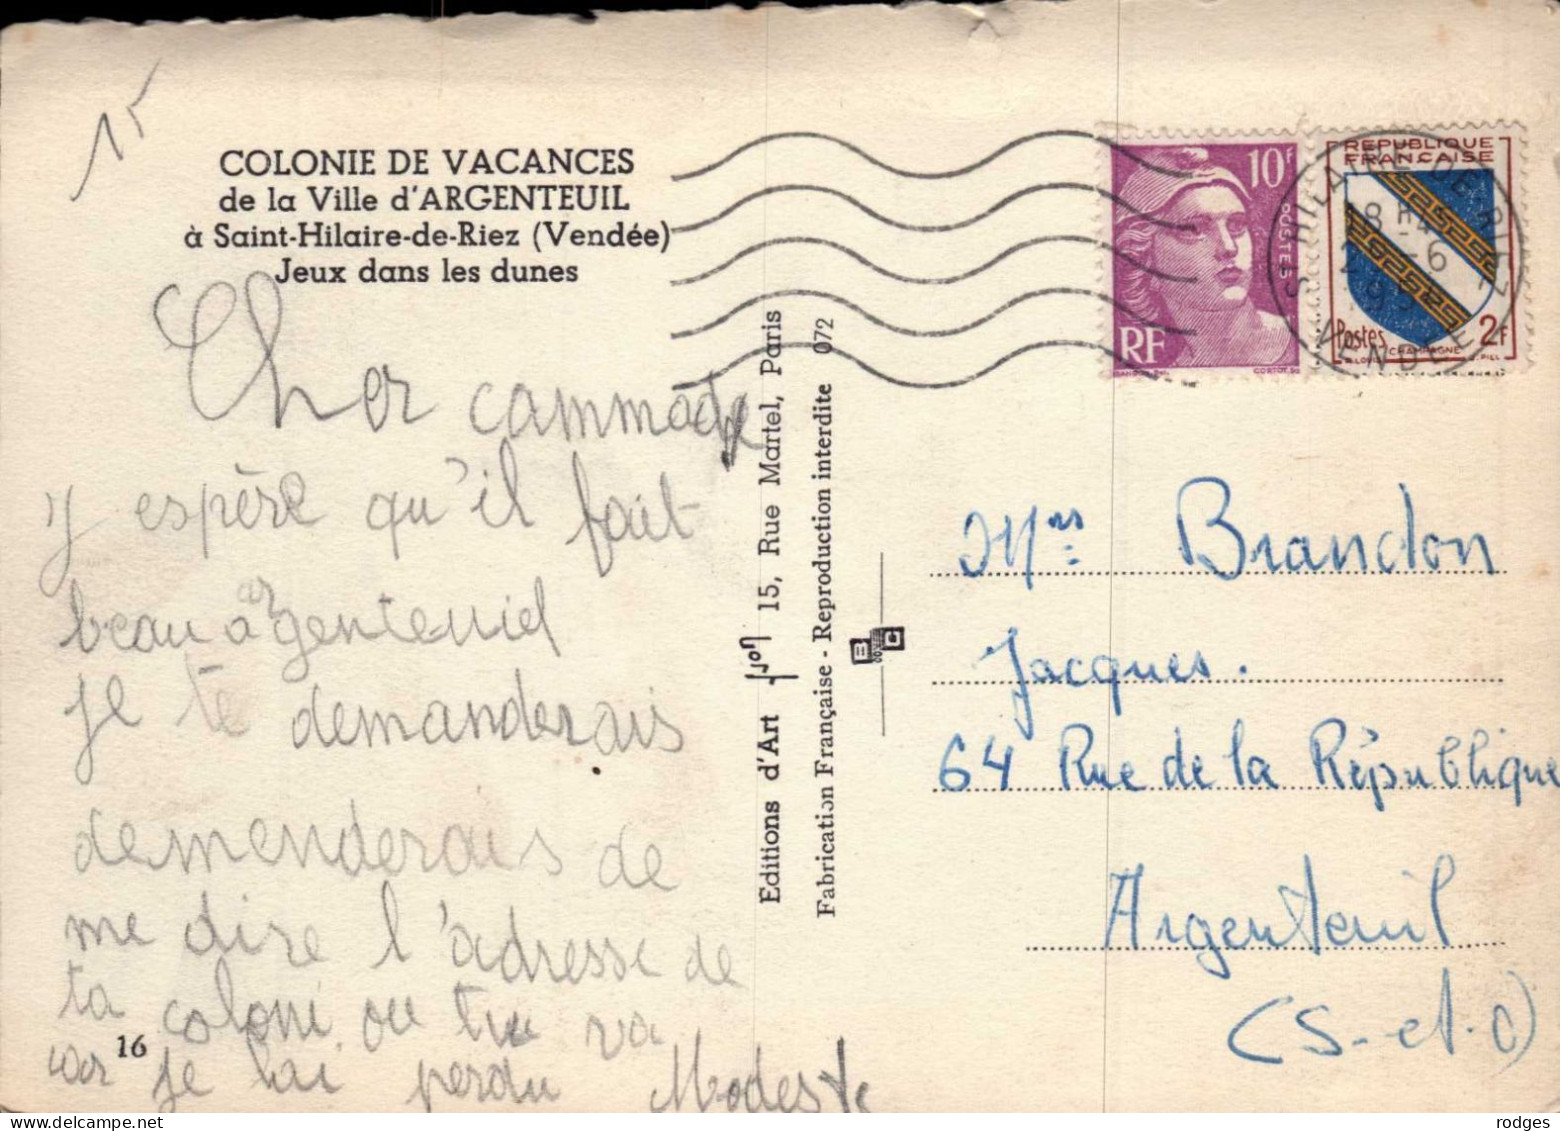 15
COLONIE DE VACANCES
de la Ville d'ARGENTEUIL
à Saint-Hilaire-de-Riez (Vendée)
Jeux dans les dunes
Cher cammade
y espère qu'il fait
beau a argenteuiel
je te demanderais
demenderais de
me dire l'adresse de
ta coloni ou tu va
car je lai perdu Modeste
16
Editions d'Art 15, Rue Martel, Paris
Fabrication Française - Reproduction interdite 072
10F
POSTES
RF
REPUBLIQUE
FRANÇAISE
Postes 2F
CHAMPAGNE
ST HILAIRE-DE-RIEZ
18 H
VENDÉE
Mrs Brandon
Jacques.
64 Rue de la République
Argenteuil
(S.-et.O)
rodges